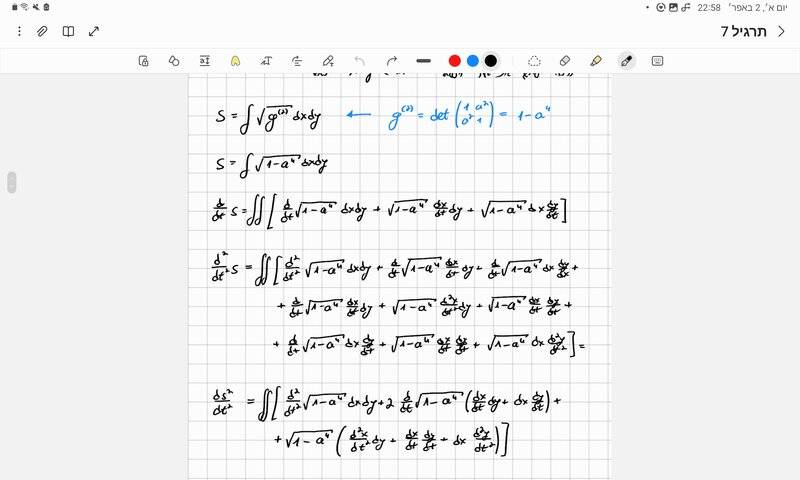 22:58 יום א׳, 2 באפר׳
תרגיל 7
S = ∫ √g⁽²⁾ dxdy ← g⁽²⁾ = det (1 a² a² 1) = 1-a⁴
S = ∫ √1-a⁴ dxdy
d/dt S = ∬ [ d/dt √1-a⁴ dxdy + √1-a⁴ dx/dt dy + √1-a⁴ dx dy/dt ]
d²/dt² S = ∬ [ d²/dt² √1-a⁴ dxdy + d/dt √1-a⁴ dx/dt dy + d/dt √1-a⁴ dx dy/dx +
+ d/dt √1-a⁴ dx/dt dy + √1-a⁴ d²x/dt² dy + √1-a⁴ dx/dt dy/dt +
+ d/dt √1-a⁴ dx dy/dt + √1-a⁴ dx/dt dy/dt + √1-a⁴ dx d²y/dt² ] =
ds²/dt² = ∬ [ d²/dt² √1-a⁴ dxdy + 2 d/dt √1-a⁴ ( dx/dt dy + dx dy/dt ) +
+ √1-a⁴ ( d²x/dt² dy + dx/dt dy/dt + dx d²y/dt² ) ]